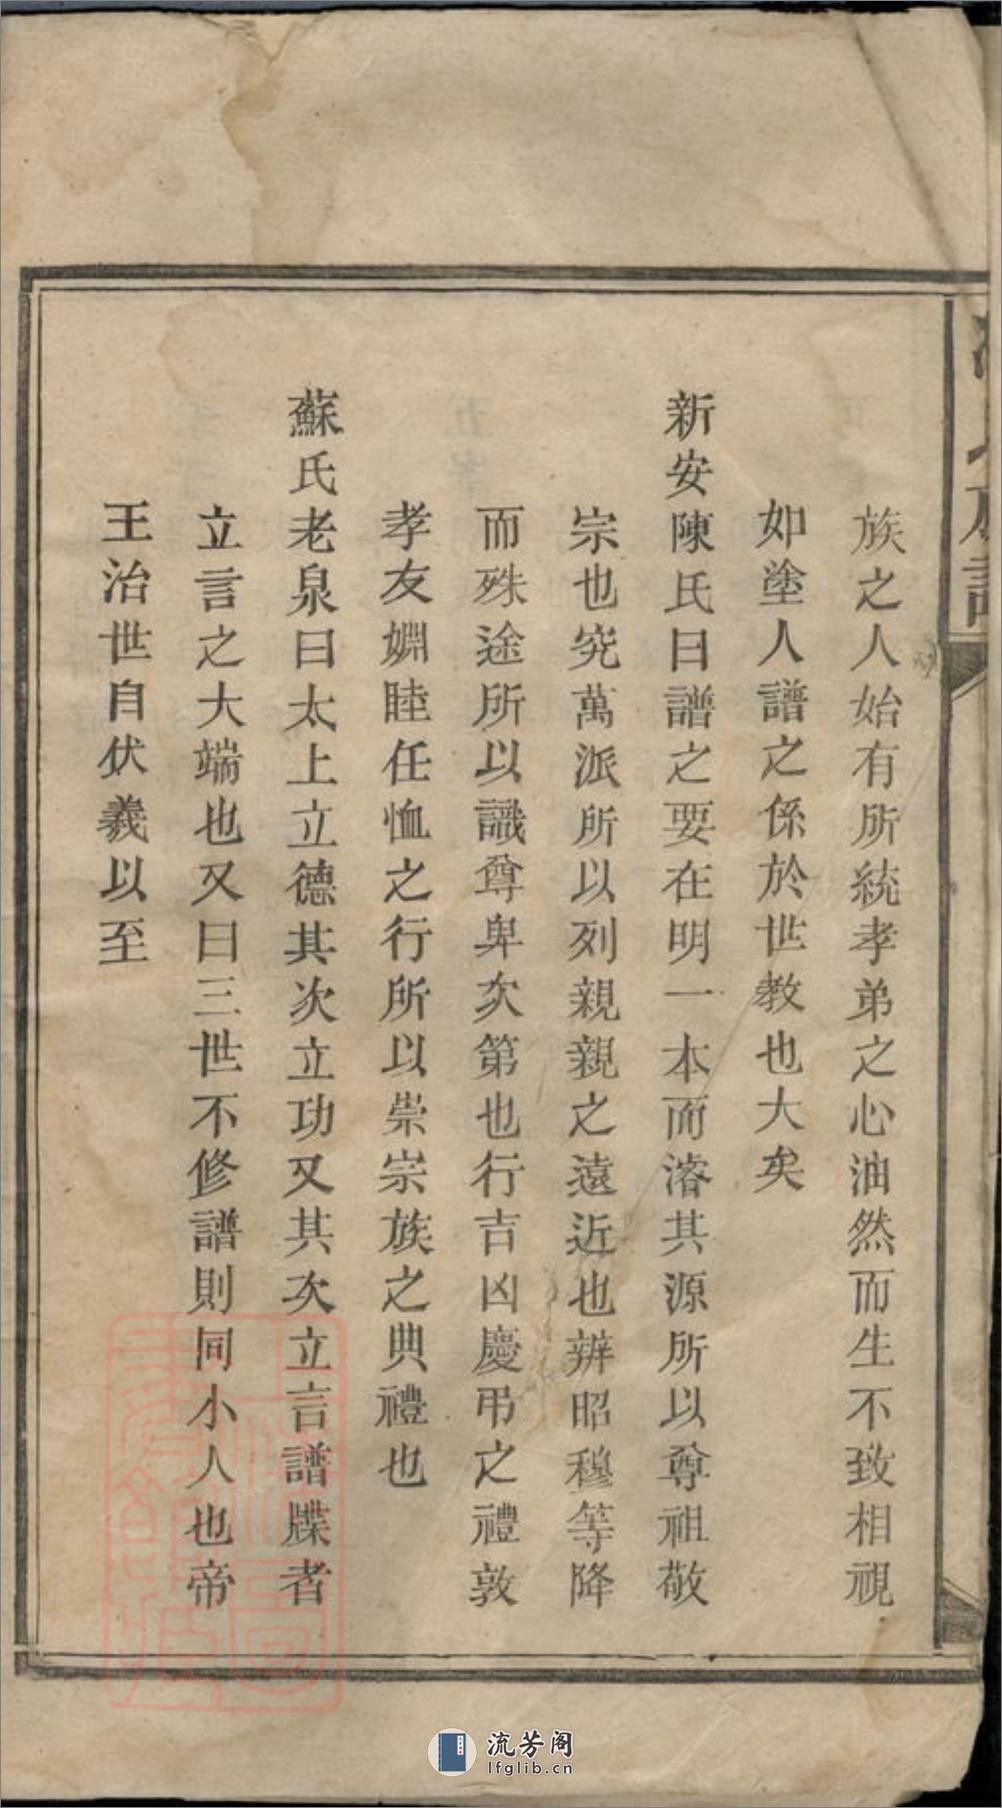 族之人始有所統孝弟之心油然而生不致相視
如塗人譜之係於世教也大矣
新安陳氏曰譜之要在明一本而濬其源所以尊祖敬
宗也究萬派所以列親親之遠近也辨昭穆等降
而殊途所以識尊卑次第也行吉凶慶弔之禮敦
孝友婣睦任恤之行所以崇宗族之典禮也
蘇氏老泉曰太上立德其次立功又其次立言譜牒者
立言之大端也又曰三世不修譜則同小人也帝
王治世自伏羲以至
流芳阁
lfglib.cn